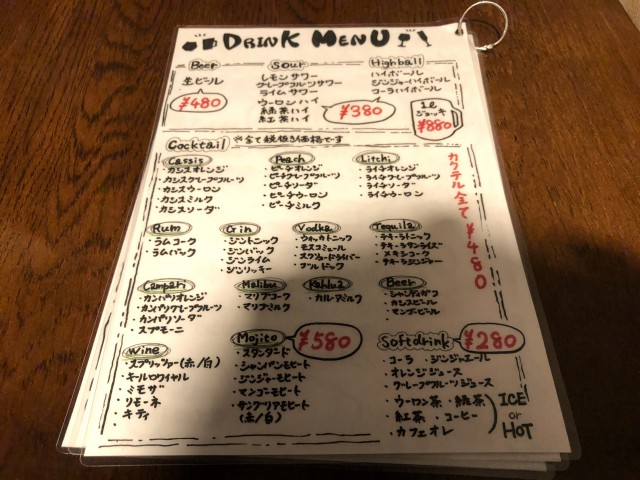 DRINK MENU
Beer
生ビール
¥480
Sour
レモンサワー
グレープフルーツサワー
ライムサワー
ウーロンハイ
緑茶ハイ
紅茶ハイ
¥380
Highball
ハイボール
ジンジャーハイボール
コーラハイボール
1ℓ
ジョッキ
¥880
Cocktail ※全て税抜き価格です
カクテル全て¥480
Cassis
・カシスオレンジ
・カシスグレープフルーツ
・カシスウーロン
・カシスミルク
・カシスソーダ
Peach
・ピーチオレンジ
・ピーチグレープフルーツ
・ピーチソーダ
・ピーチウーロン
・ピーチミルク
Litchi
・ライチオレンジ
・ライチグレープフルーツ
・ライチソーダ
・ライチウーロン
Rum
・ラムコーク
・ラムバック
Gin
・ジントニック
・ジンバック
・ジンライム
・ジンリッキー
Vodka
・ウォッカトニック
・モスコミュール
・スクリュードライバー
・ブルドック
Tequila
・テキーラトニック
・テキーラサンライズ
・メキシコーク
・テキーラジンジャー
Campari
・カンパリオレンジ
・カンパリグレープフルーツ
・カンパリソーダ
・スプモーニ
Malibu
・マリブコーク
・マリブミルク
Kahlua
・カルアミルク
Beer
・シャンディガフ
・カシスビール
・マンゴービール
Wine
・スプリッツァー(赤/白)
・キールロワイヤル
・ミモザ
・リモーネ
・キティ
Mojito ¥580
・スタンダード
・シャンパンモヒート
・ジンジャーモヒート
・マンゴーモヒート
・サングリアモヒート
(赤/白)
Softdrink ¥280
・コーラ ・ジンジャエール
・オレンジジュース
・グレープフルーツジュース
・ウーロン茶 ・緑茶
・紅茶 ・コーヒー
・カフェオレ
ICE
or
HOT